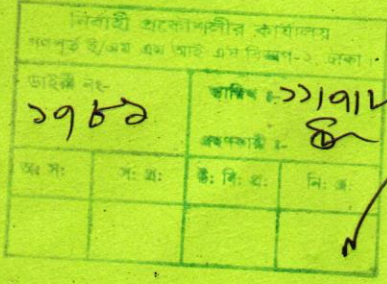 নির্বাহী প্রকৌশলীর কার্যালয়
গণপূর্ত ই/এম এম আই এস বিভাগ-২, ঢাকা।
ডাইরী নং-
তারিখ ঃ- ১১/৭/১
১৭৮৯
গ্রহণকারী ঃ-
অঃ সঃ
সঃ প্রঃ
উঃ বিঃ প্রঃ
নিঃ প্রঃ